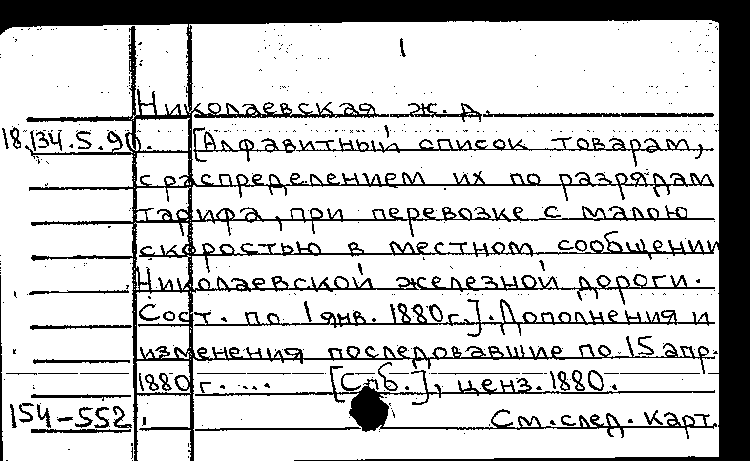 1
Николаевская ж. д.
18.134.5.90. [Алфавитный список товарам,
с распределением их по разрядам
тарифа, при перевозке с малою
скоростью в местном сообщении
Николаевской железной дороги.
Сост. по 1 янв. 1880 г.]. Дополнения и
изменения последовавшие по 15 апр.
1880 г. ... [Спб.], ценз. 1880.
154-552 См. след. карт.